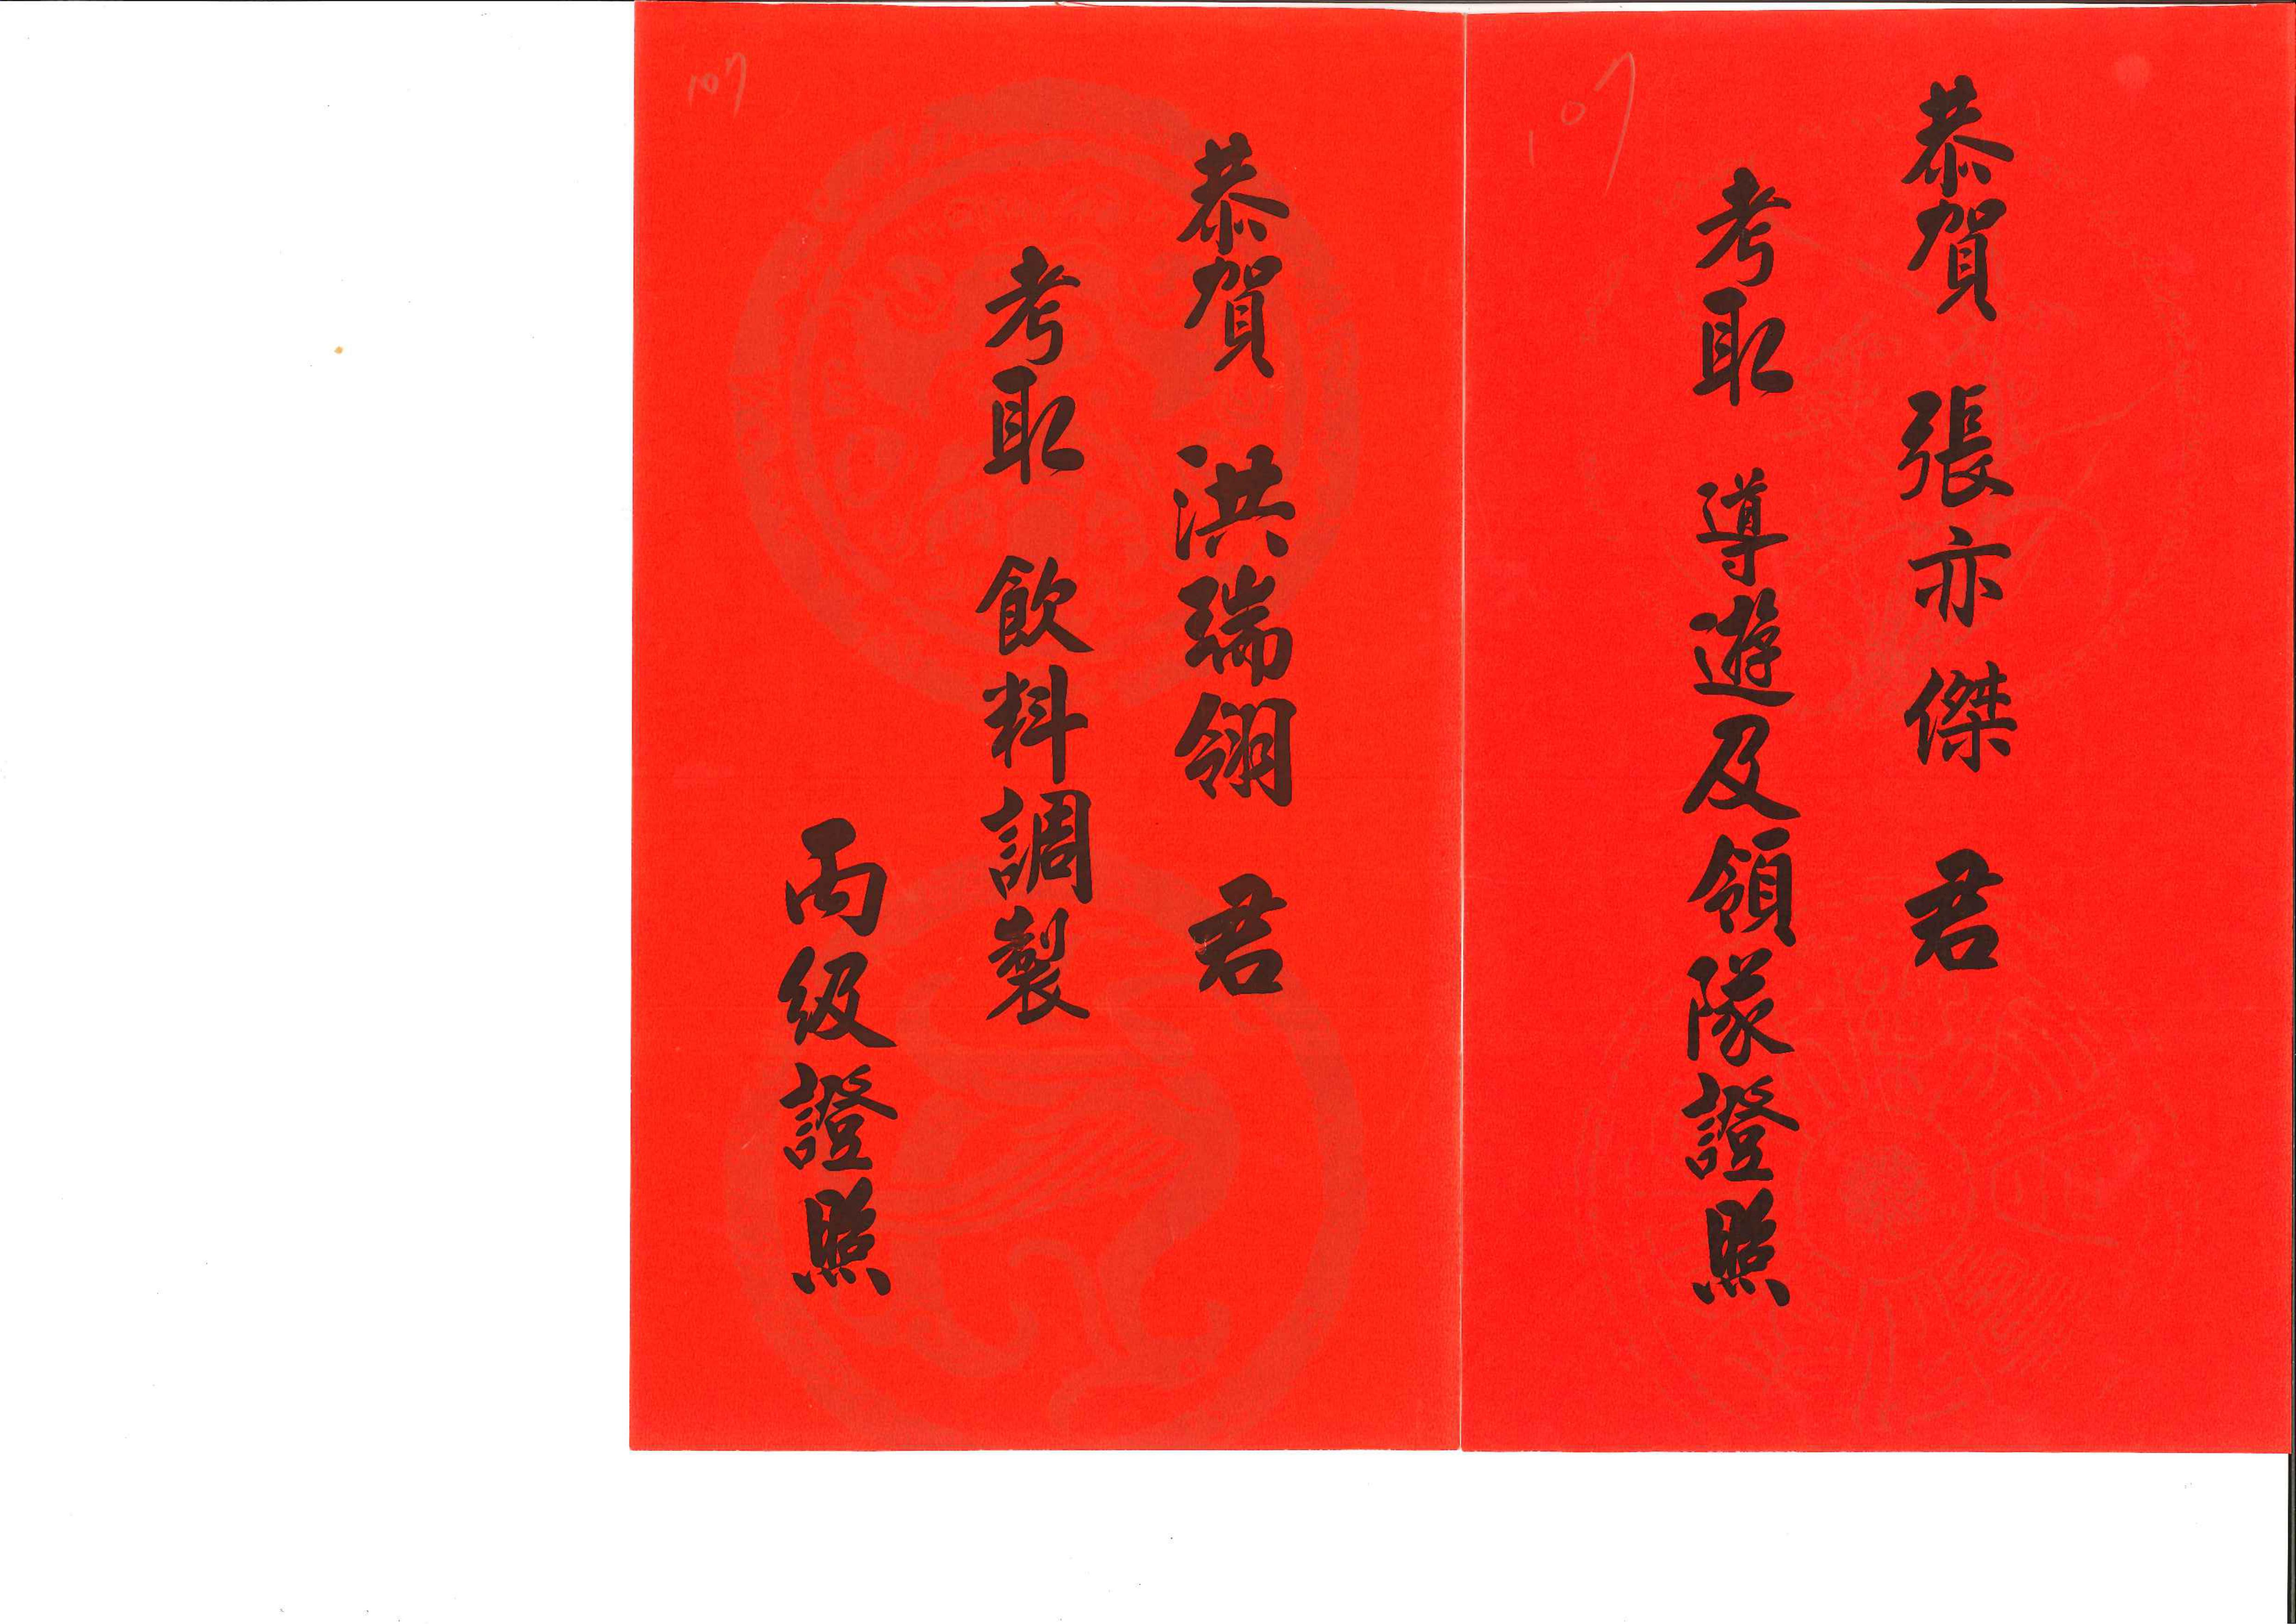 107
恭賀 張亦傑 君
考取 導遊及領隊證照
107
恭賀 洪瑞翎 君
考取 飲料調製
丙級證照